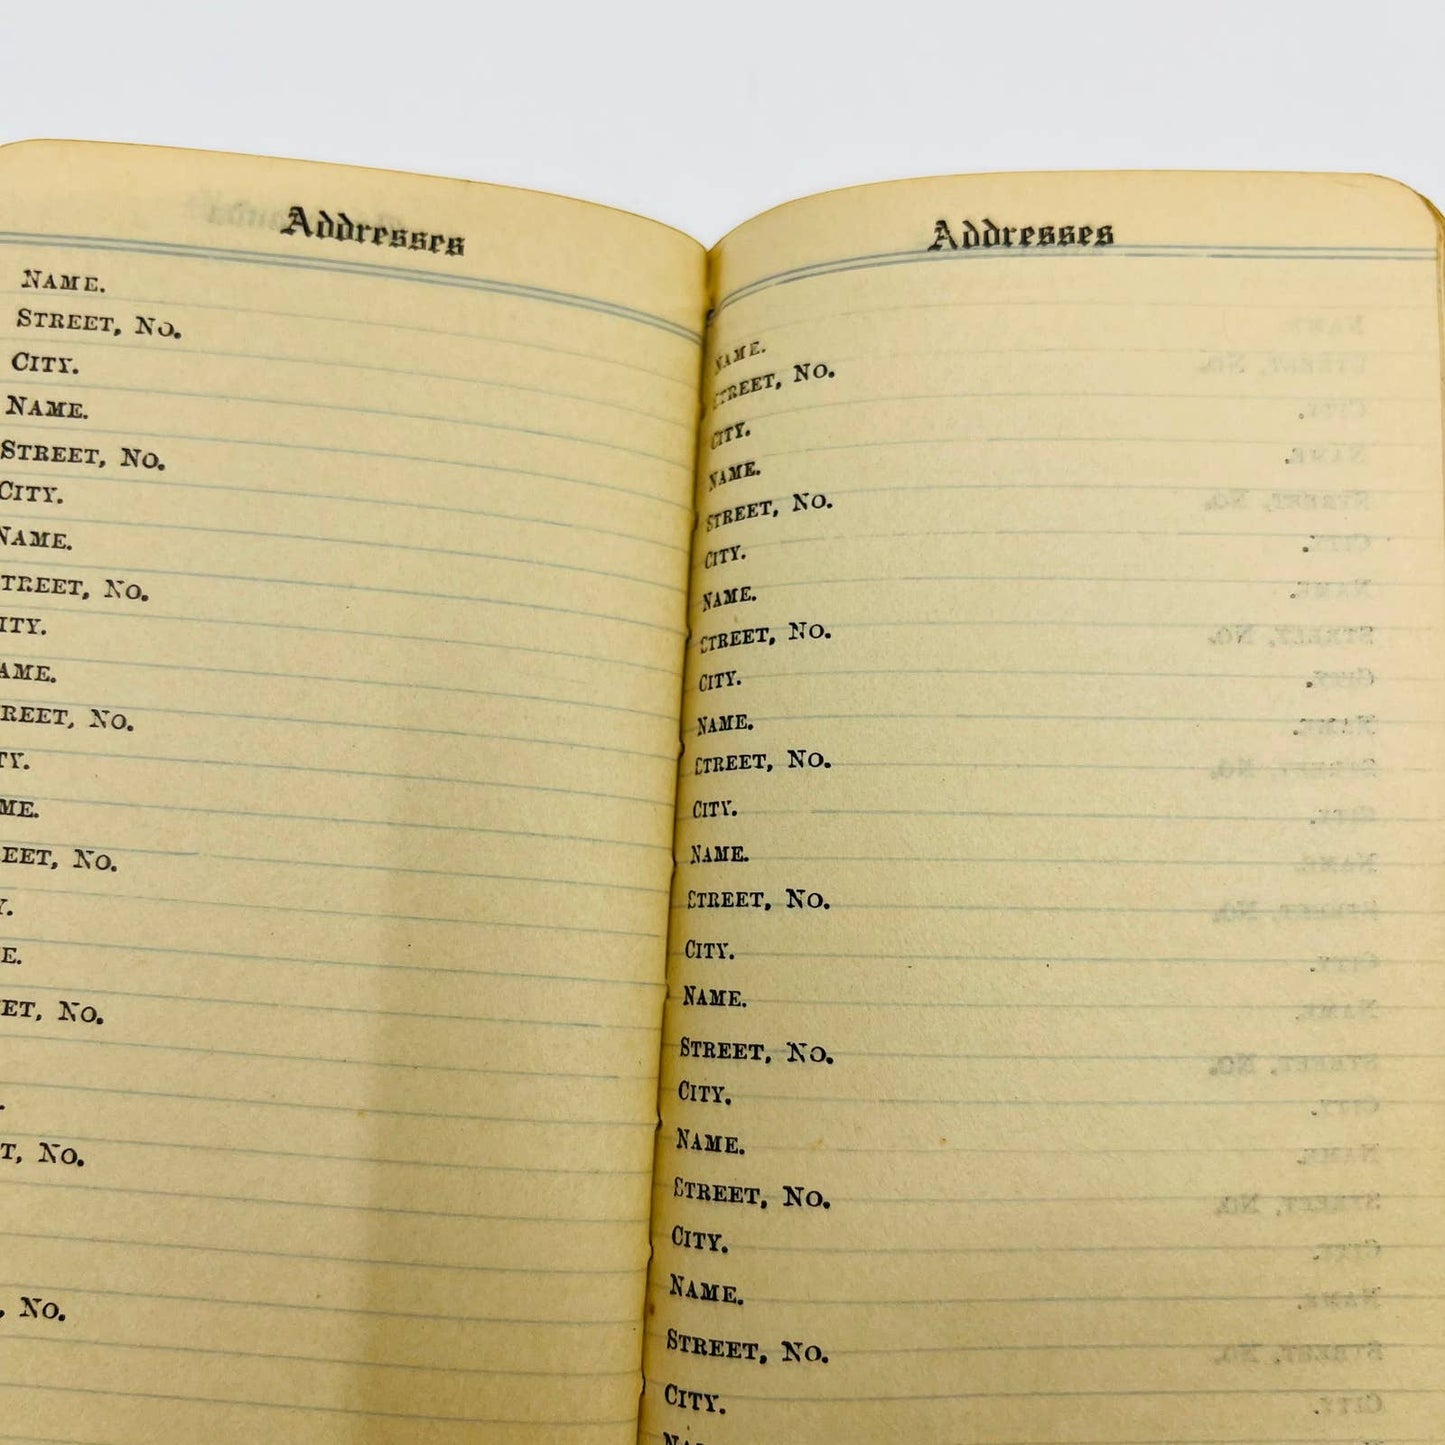 Addresses
NAME.
STREET, NO.
CITY.
NAME.
STREET, NO.
CITY.
NAME.
TREET, NO.
ITY.
AME.
REET, NO.
TY.
ME.
EET, NO.
Y.
E.
ET, NO.
.
T, NO.
, NO.
Addresses
NAME.
STREET, NO.
CITY.
NAME.
STREET, NO.
CITY.
NAME.
STREET, NO.
CITY.
NAME.
STREET, NO.
CITY.
NAME.
STREET, NO.
CITY.
NAME.
STREET, NO.
CITY.
NAME.
STREET, NO.
CITY.
NAME.
STREET, NO.
CITY.